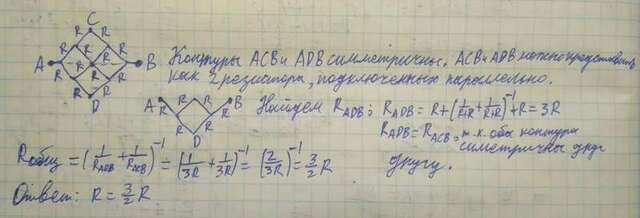 C
R R
R R R R
A B
R R R R
R R
D
Контуры ACB и ADB симметричны. ACB и ADB можно представить
как 2 резистора, подключенных параллельно.
A R R B
R R
R R
D
Найдем R_ADB; R_ADB = R+(1/(R+R)+1/(R+R))^-1+R = 3R
R_ADB = R_ACB, т.к. оба контура
симметричны друг
другу.
R общ = (1/R_ADB + 1/R_ACB)^-1 = (1/3R + 1/3R)^-1 = (2/3R)^-1 = 3/2 R
Ответ: R = 3/2 R